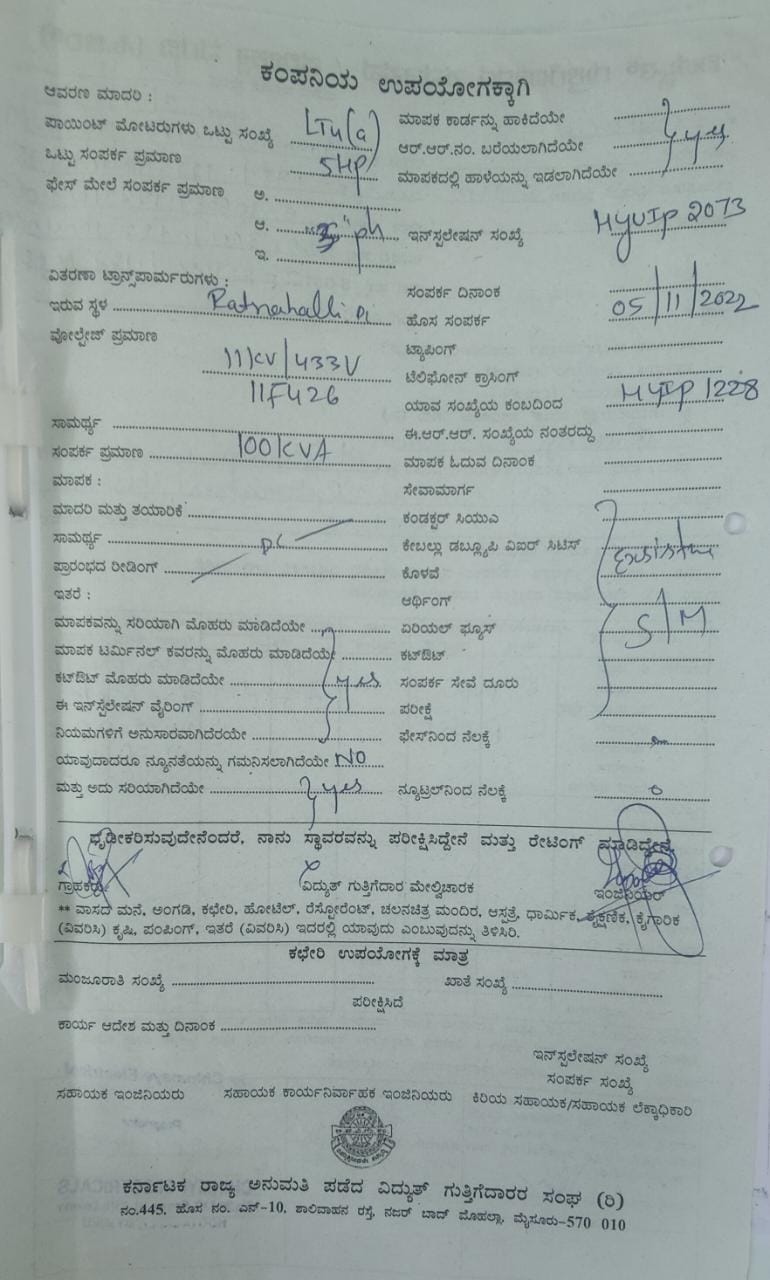 ಕಂಪನಿಯ ಉಪಯೋಗಕ್ಕಾಗಿ
ಆವರಣ ಮಾದರಿ :
ಪಾಯಿಂಟ್ ಮೋಟರುಗಳು ಒಟ್ಟು ಸಂಖ್ಯೆ LT4(a)
ಒಟ್ಟು ಸಂಪರ್ಕ ಪ್ರಮಾಣ 5HP
ಫೇಸ್ ಮೇಲೆ ಸಂಪರ್ಕ ಪ್ರಮಾಣ ಅ.
ಆ. ph
ಇ.
ವಿತರಣಾ ಟ್ರಾನ್ಸ್‌ಪಾರ್ಮರುಗಳು :
ಇರುವ ಸ್ಥಳ Ratnahalli
ವೋಲ್ಟೇಜ್ ಪ್ರಮಾಣ
11KV/433V
11F426
ಸಾಮರ್ಥ್ಯ
ಸಂಪರ್ಕ ಪ್ರಮಾಣ 100KVA
ಮಾಪಕ :
ಮಾದರಿ ಮತ್ತು ತಯಾರಿಕೆ
ಸಾಮರ್ಥ್ಯ
ಪ್ರಾರಂಭದ ರೀಡಿಂಗ್
ಇತರೆ :
ಮಾಪಕವನ್ನು ಸರಿಯಾಗಿ ಮೊಹರು ಮಾಡಿದೆಯೇ
ಮಾಪಕ ಟರ್ಮಿನಲ್ ಕವರನ್ನು ಮೊಹರು ಮಾಡಿದೆಯೇ
ಕಟ್‌ಔಟ್ ಮೊಹರು ಮಾಡಿದೆಯೇ yes
ಈ ಇನ್‌ಸ್ಟಲೇಷನ್ ವೈರಿಂಗ್
ನಿಯಮಗಳಿಗೆ ಅನುಸಾರವಾಗಿದೆರಯೇ
ಯಾವುದಾದರೂ ನ್ಯೂನತೆಯನ್ನು ಗಮನಿಸಲಾಗಿದೆಯೇ NO
ಮತ್ತು ಅದು ಸರಿಯಾಗಿದೆಯೇ yes
ಮಾಪಕ ಕಾರ್ಡನ್ನು ಹಾಕಿದೆಯೇ
ಆರ್.ಆರ್.ನಂ. ಬರೆಯಲಾಗಿದೆಯೇ yes
ಮಾಪಕದಲ್ಲಿ ಹಾಳೆಯನ್ನು ಇಡಲಾಗಿದೆಯೇ
ಇನ್‌ಸ್ಟಲೇಷನ್ ಸಂಖ್ಯೆ HYUIP 2073
ಸಂಪರ್ಕ ದಿನಾಂಕ
ಹೊಸ ಸಂಪರ್ಕ 05/11/2022
ಟ್ಯಾಪಿಂಗ್
ಟೆಲಿಫೋನ್ ಕ್ರಾಸಿಂಗ್
ಯಾವ ಸಂಖ್ಯೆಯ ಕಂಬದಿಂದ HYIP 1228
ಈ.ಆರ್.ಆರ್. ಸಂಖ್ಯೆಯ ನಂತರದ್ದು
ಮಾಪಕ ಓದುವ ದಿನಾಂಕ
ಸೇವಾಮಾರ್ಗ
ಕಂಡಕ್ಟರ್ ಸಿಯುಎ
ಕೇಬಲ್ಲು ಡಬ್ಲ್ಯೂಪಿ ವಿಐರ್ ಸಿಟಿಸ್
ಕೊಳವೆ
ಅರ್ಥಿಂಗ್
ಏರಿಯಲ್ ಫ್ಯೂಸ್ S/M
ಕಟ್‌ಔಟ್
ಸಂಪರ್ಕ ಸೇವೆ ದೂರು
ಪರೀಕ್ಷೆ
ಫೇಸ್‌ನಿಂದ ನೆಲಕ್ಕೆ
ನ್ಯೂಟ್ರಲ್‌ನಿಂದ ನೆಲಕ್ಕೆ
ಧೃಡೀಕರಿಸುವುದೇನೆಂದರೆ, ನಾನು ಸ್ಥಾವರವನ್ನು ಪರೀಕ್ಷಿಸಿದ್ದೇನೆ ಮತ್ತು ರೇಟಿಂಗ್ ಮಾಡಿದ್ದೇನೆ.
ಗ್ರಾಹಕರು ವಿದ್ಯುತ್ ಗುತ್ತಿಗೆದಾರ ಮೇಲ್ವಿಚಾರಕ ಇಂಜಿನಿಯರ್
** ವಾಸದ ಮನೆ, ಅಂಗಡಿ, ಕಛೇರಿ, ಹೋಟೆಲ್, ರೆಸ್ಟೋರೆಂಟ್, ಚಲನಚಿತ್ರ ಮಂದಿರ, ಆಸ್ಪತ್ರೆ, ಧಾರ್ಮಿಕ, ಶೈಕ್ಷಣಿಕ, ಕೈಗಾರಿಕ
(ವಿವರಿಸಿ) ಕೃಷಿ, ಪಂಪಿಂಗ್, ಇತರೆ (ವಿವರಿಸಿ) ಇದರಲ್ಲಿ ಯಾವುದು ಎಂಬುವುದನ್ನು ತಿಳಿಸಿರಿ.
ಕಛೇರಿ ಉಪಯೋಗಕ್ಕೆ ಮಾತ್ರ
ಮಂಜೂರಾತಿ ಸಂಖ್ಯೆ ಖಾತೆ ಸಂಖ್ಯೆ
ಪರೀಕ್ಷಿಸಿದೆ
ಕಾರ್ಯ ಆದೇಶ ಮತ್ತು ದಿನಾಂಕ
ಇನ್‌ಸ್ಟಲೇಷನ್ ಸಂಖ್ಯೆ
ಸಂಪರ್ಕ ಸಂಖ್ಯೆ
ಸಹಾಯಕ ಇಂಜಿನಿಯರು ಸಹಾಯಕ ಕಾರ್ಯನಿರ್ವಾಹಕ ಇಂಜಿನಿಯರು ಕಿರಿಯ ಸಹಾಯಕ/ಸಹಾಯಕ ಲೆಕ್ಕಾಧಿಕಾರಿ
ಕರ್ನಾಟಕ ರಾಜ್ಯ ಅನುಮತಿ ಪಡೆದ ವಿದ್ಯುತ್ ಗುತ್ತಿಗೆದಾರರ ಸಂಘ (ರಿ)
ನಂ.445, ಹೊಸ ನಂ. ಎನ್-10, ಶಾಲಿವಾಹನ ರಸ್ತೆ, ನಜರ್ ಬಾದ್ ಮೊಹಲ್ಲಾ, ಮೈಸೂರು-570 010